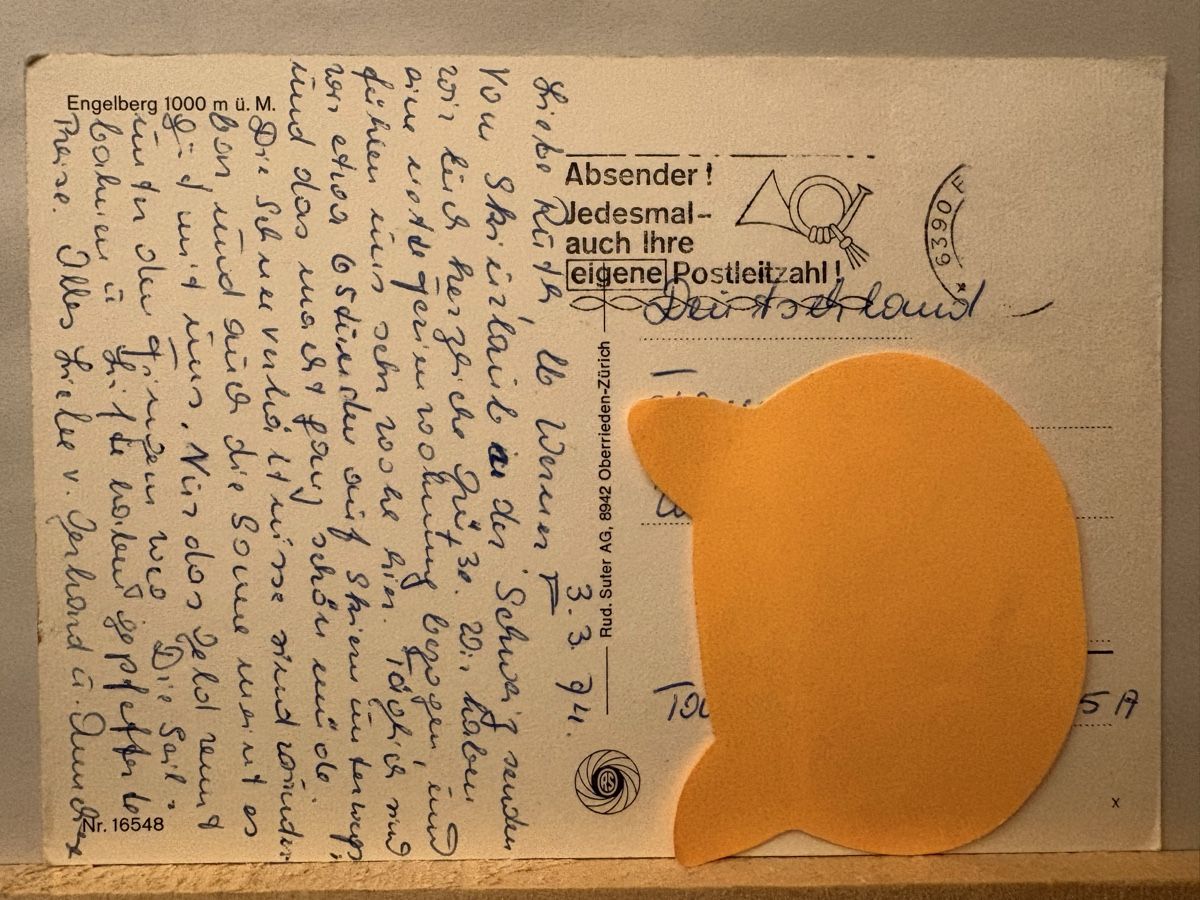 Engelberg 1000 m ü. M.
3. 3. 94.
Liebe Ruth, lb. Werner
Vom Skiurlaub in der Schweiz senden
wir Euch herzliche Grüße. Wir haben
eine nette Ferienwohnung bezogen, und
fühlen uns sehr wohl hier. Täglich sind
wir etwa 6 Stunden auf Skiern unterwegs
und das macht ganz schön müde.
Die Schneeverhältnisse sind wunder-
bar, und auch die Sonne meint es
gut mit uns. Nur das Geld rennt
uns den
bahnen u. Lifte haben gepfefferte
Preise. Alles Liebe v. Gerhard u.
Nr. 16548
Rud. Suter AG, 8942 Oberrieden-Zürich
Absender!
Jedesmal-
auch Ihre
eigene Postleitzahl!
6390
Deutschland
5 A
x